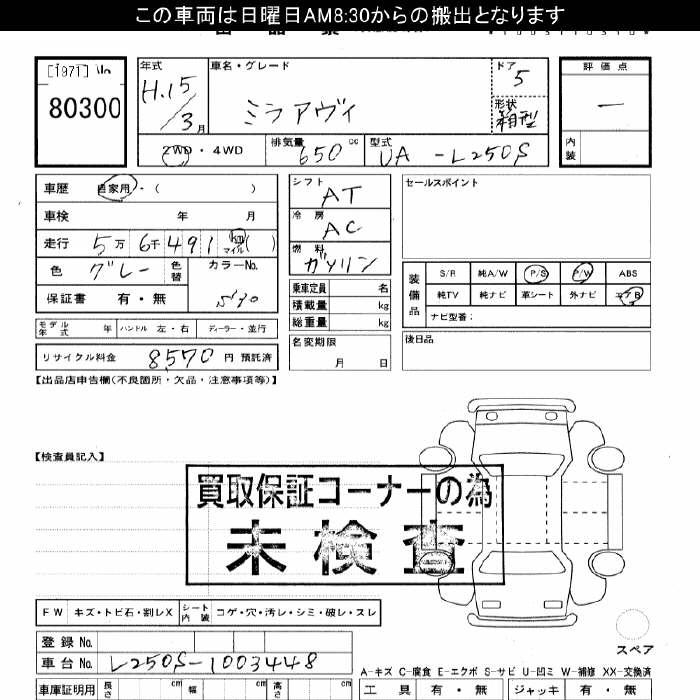 この車両は日曜日AM8:30からの搬出となります
[1971]
80300
年式
H.15/3月
車名・グレード
ミラアヴィ
ドア
5
形状
箱型
評価点
―
内装
2WD・4WD
排気量
650cc
型式
UA-L250S
車歴
自家用・( )
車検 年 月
走行
5万6千491 km マイル ( )
色
グレー
色替
カラーNo.
S30
保証書 有・無
シフト
AT
冷房
AC
燃料
ガソリン
乗車定員 名
積載量 kg
総重量 kg
名変期限
月 日
セールスポイント
装備品
S/R 純A/W P/S P/W ABS
純TV 純ナビ 革シート 外ナビ エアB
ナビ型番:
後日品
モデル年式 年 ハンドル 左・右 ディーラー・並行
リサイクル料金 8570 円 預託済
【出品店申告欄(不良箇所・欠品・注意事項等)】
【検査員記入】
買取保証コーナーの為
未検査
FW キズ・トビ石・割レX シート内装 コゲ・穴・汚レ・シミ・破レ・スレ
登録 No.
車台 No. L250S-1003448
スペア
A-キズ C-腐食 E-エクボ S-サビ U-凹ミ W-補修 XX-交換済
車庫証明用 長さ cm 幅 cm 高さ cm
工具 有・無 ジャッキ 有・無